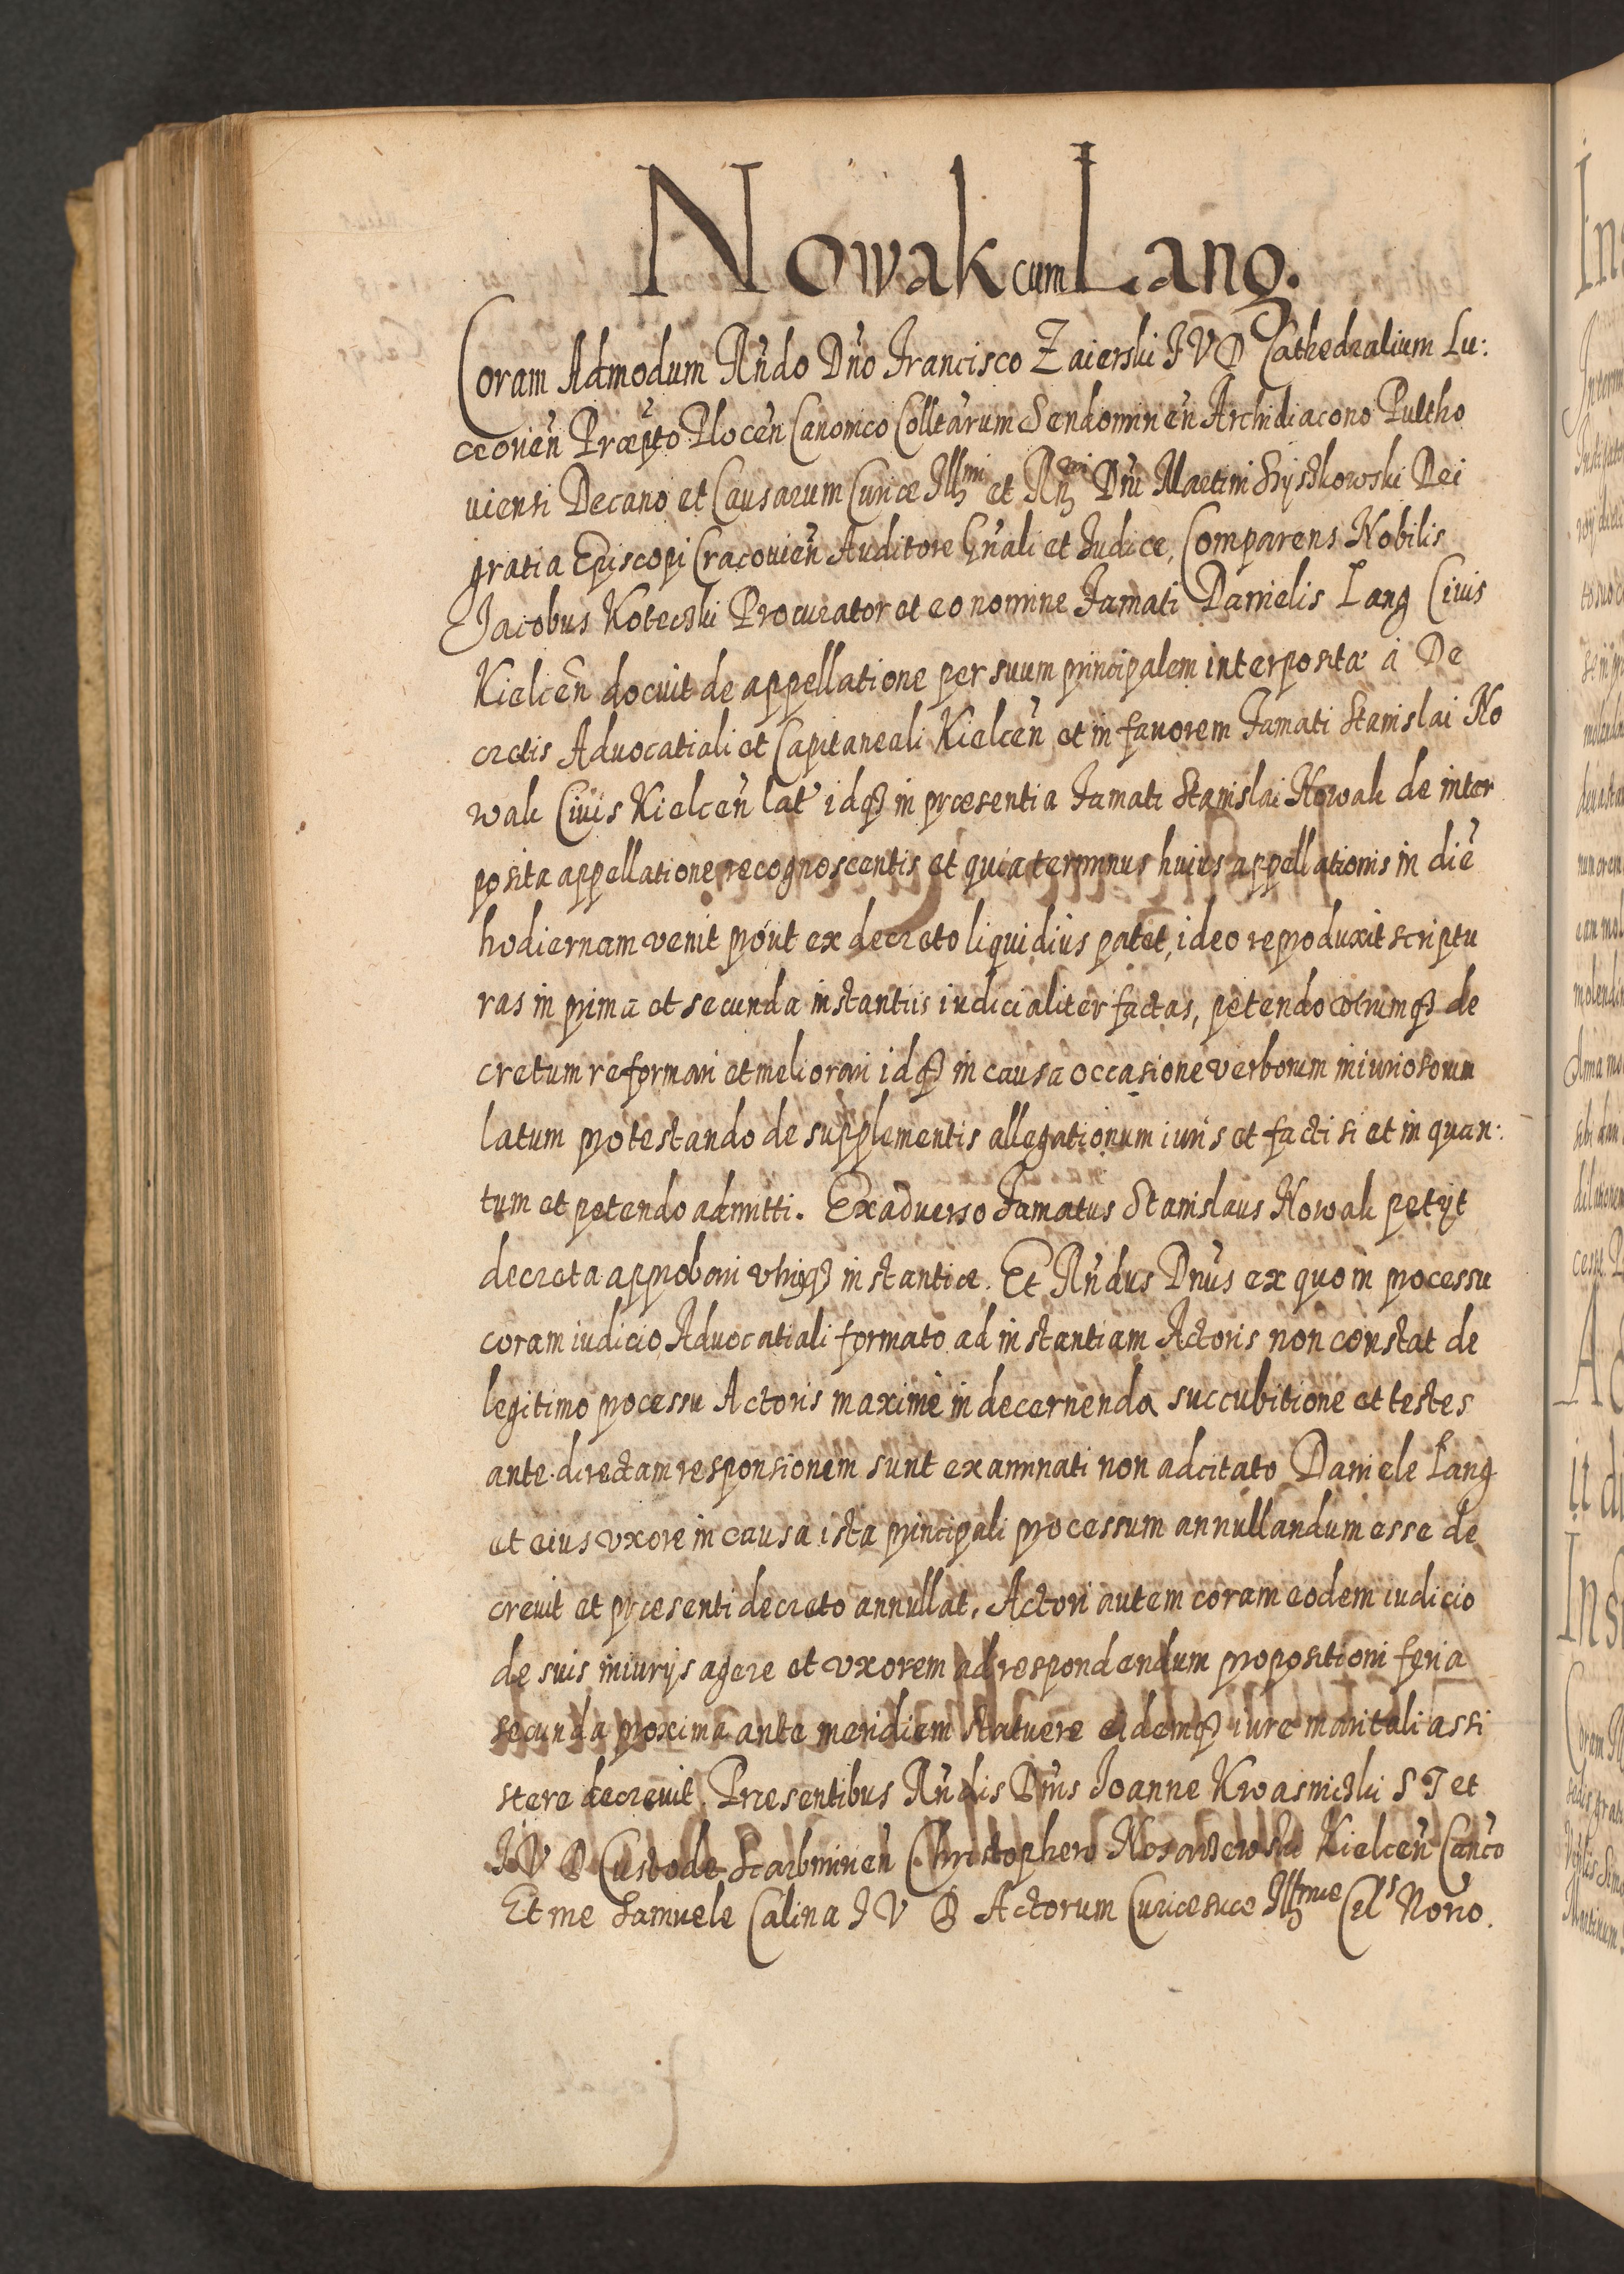 Nowak cum Lang.
Coram Admodum Rñdo Dño Francisco Zaierski I V D Cathedralium Lu:
ceorieñ Præpto Plocen̄ Canonico Colltarum Sendomirieñ Archidiacono Pultho
viensi Decano et Causarum Curiæ Illmi et Rmi Dni Martini Szyszkowski Dei
gratia Episcopi Cracovieñ Auditore Gñali et Iudice, Comparens Nobilis
Jacobus Koteczki Procurator et eo nomine Famati Danielis Lang Civis
Kielceñ docuit de appellatione per suum principalem interposita à De
cretis Advocatiali et Capitaneali Kielceñ et in favorem Famati Stanislai No
wak Civis Kielceñ lat' idq3 in præsentia Famati Stanislai Nowak de inter
posita appellatione recognoscentis et quia terminus huius appellationis in diē
hodiernam venit prout ex decreto liquidius patet, ideo reproduxit scriptu
ras in prima et secunda instantiis iudicialiter factas, petendo utrumq3 de
cretum reformari et meliorari idq3 in causa occasione verborum iniuriosorum
latum protestando de supplementis allegationum iuris et facti si et in quan:
tum et petendo admitti. Exadverso Famatus Stanislaus Nowak petijt
decreta approbari utriq3 instantiæ. Et Rñdus Dñus ex quo in processu
coram iudicio Advocatiali formato ad instantiam Actoris non constat de
legitimo processu Actoris maximè in decernenda succubitione et testes
ante directam responsionem sunt examinati non adcitato Daniele Lang
et eius uxore in causa ista principali processum annullandum esse de
crevit et præsenti decreto annullat, Actori autem coram eodem iudicio
de suis iniurijs agere et uxorem ad respondendum propositioni feria
secunda proxima ante meridiem statuere eidemq3 iure maritali assi
stere decrevit. Præsentibus Rñdis Dñis Joanne Kroasnicki S T et
I V D Custode Scarbimireñ Christophero Nosarzewski Kielceñ Canco
Et me Samuele Calina I V D Actorum Curiæ suæ Illmæ Cels Norio.